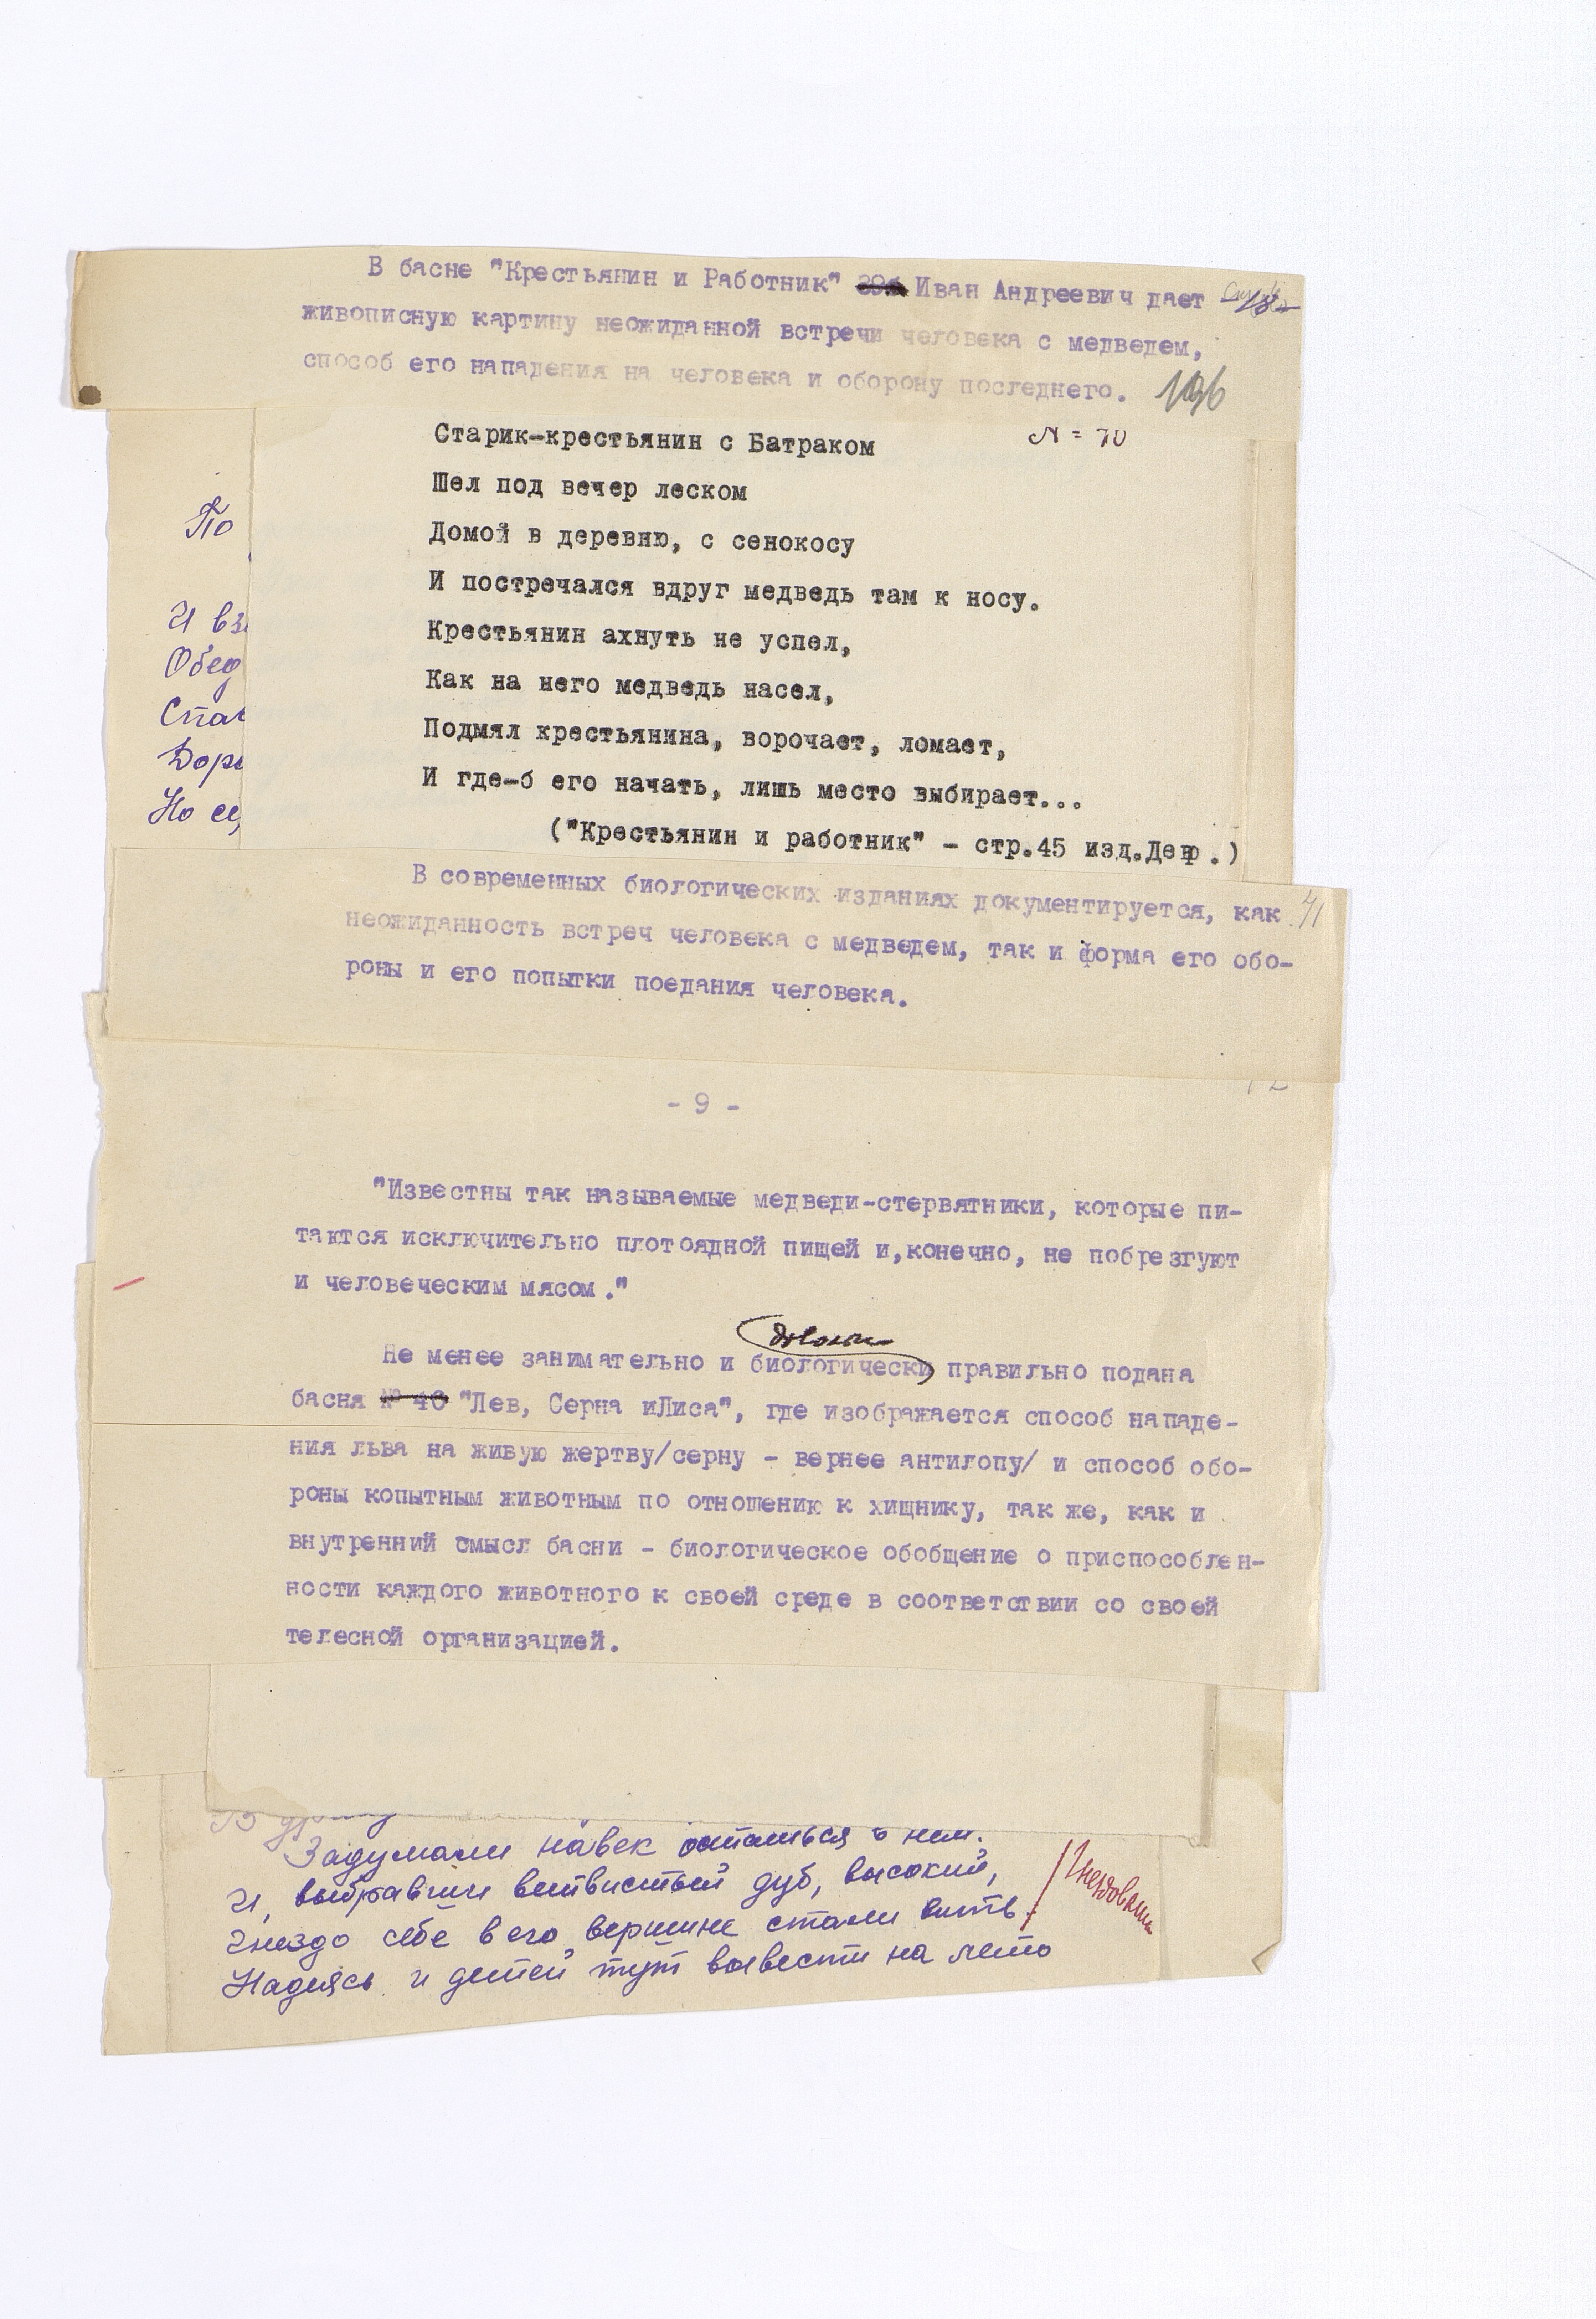 В басне "Крестьянин и Работник" Иван Андреевич дает
живописную картину неожиданной встречи человека с медведем,
способ его нападения на человека и оборону последнего. 196
Старик-крестьянин с Батраком N = 70
Шел под вечер леском
По
Домой в деревню, с сенокосу
И постречался вдруг медведь там к носу.
И вз
Крестьянин ахнуть не успел,
Обед
Как на него медведь насел,
Спат
Подмял крестьянина, ворочает, ломает,
Доро
И где-б его начать, лишь место выбирает...
Но ес
("Крестьянин и работник" - стр.45 изд.Дет.)
В современных биологических изданиях документируется, как 41
неожиданность встреч человека с медведем, так и форма его обо-
роны и его попытки поедания человека.
- 9 -
"Известны так называемые медведи-стервятники, которые пи-
таются исключительно плотоядной пищей и,конечно, не побрезгуют
и человеческим мясом."
Не менее занимательно и биологически правильно подана
басня № 40 "Лев, Серна иЛиса", где изображается способ нападе-
ния льва на живую жертву/серну - вернее антилопу/ и способ обо-
роны копытным животным по отношению к хищнику, так же, как и
внутренний смысл басни - биологическое обобщение о приспособлен-
ности каждого животного к своей среде в соответствии со своей
телесной организацией.
Задумали навек остаться в нем.
И, выбравши ветвистый дуб, высокий,
Гнездо себе в его вершине стали вить
Надеясь и детей тут вывести на лето